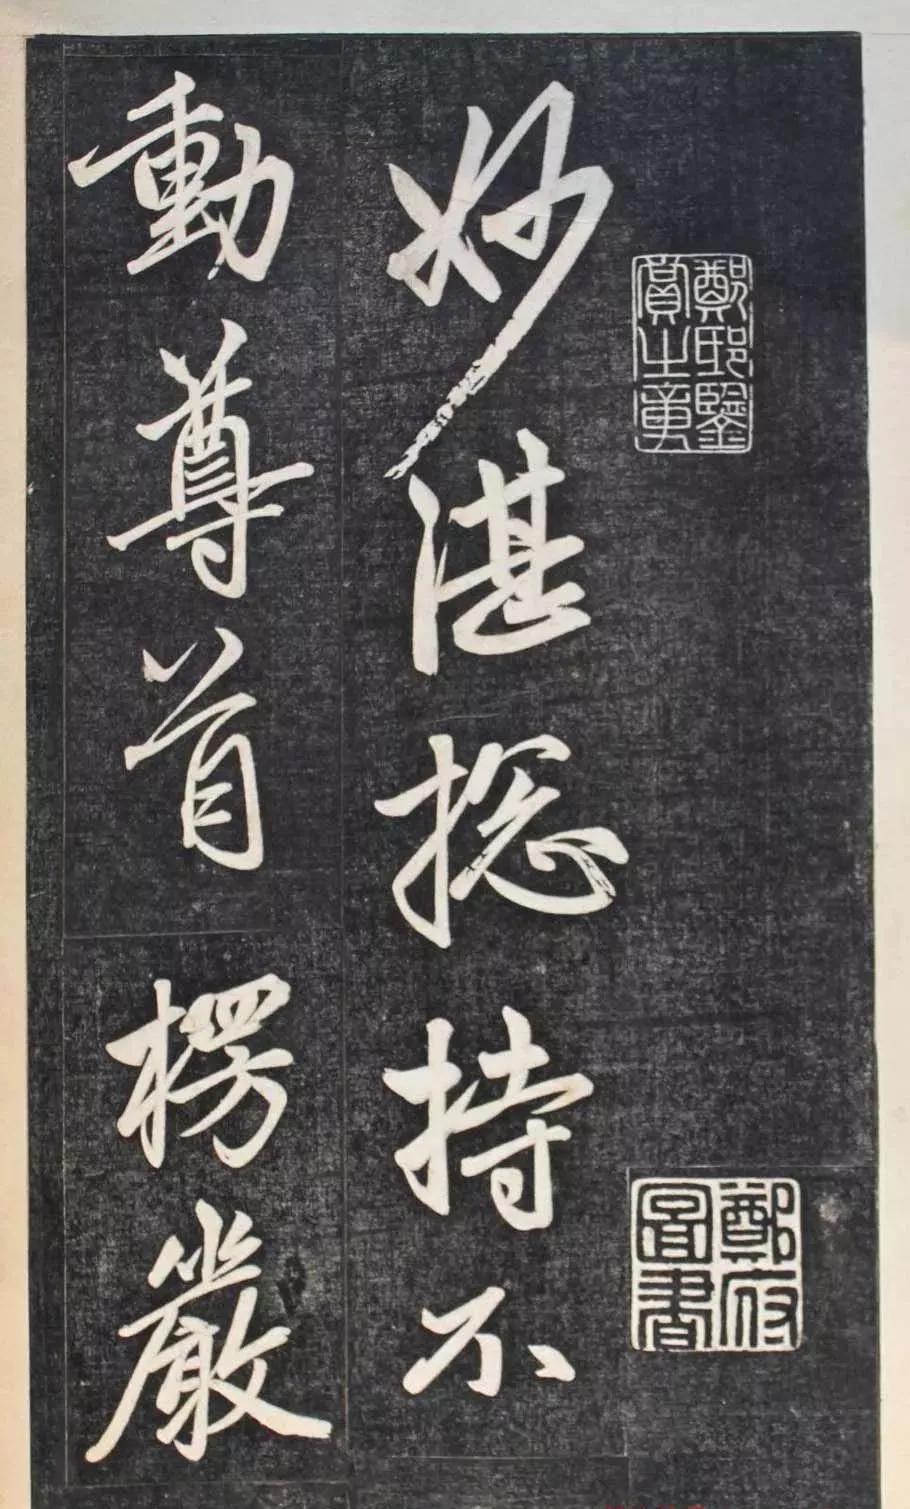 鄭邸鑒賞之章
鄭府圖書
妙湛捴持不
動尊首楞嚴